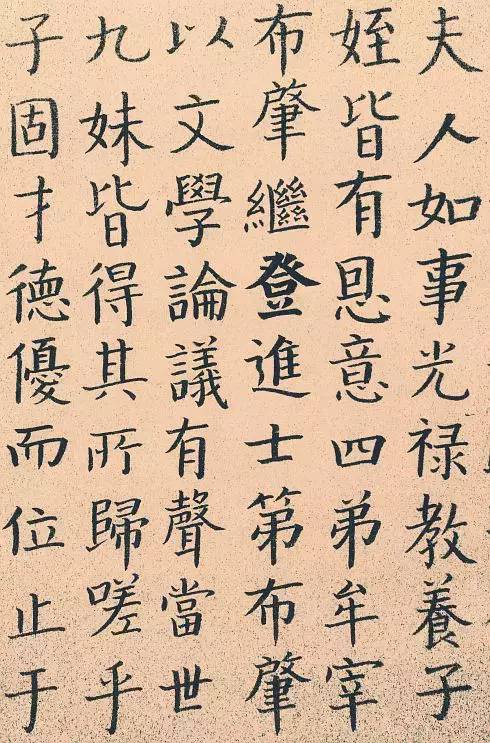 夫人如事光禄教養子
姪皆有恩意四弟牟宰
布肇繼登進士第布肇
以文學論議有聲當世
九妹皆得其所歸嗟乎
子固才德優而位止于